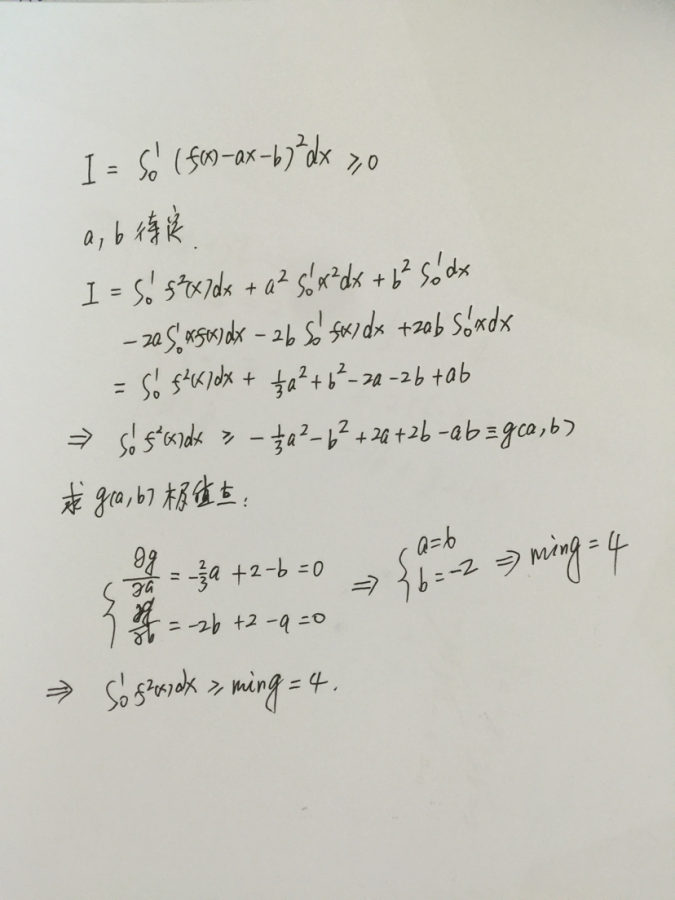 I = ∫₀¹ (f(x)-ax-b)²dx ≥ 0
a, b 待定.
I = ∫₀¹ f²(x)dx + a² ∫₀¹x²dx + b² ∫₀¹dx
-2a∫₀¹xf(x)dx - 2b ∫₀¹ f(x)dx + 2ab ∫₀¹xdx
= ∫₀¹ f²(x)dx + 1/3 a² + b² - 2a - 2b + ab
⇒ ∫₀¹ f²(x)dx ≥ -1/3 a² - b² + 2a + 2b - ab ≡ g(a,b)
求 g(a,b) 极值点:
{ ∂g/∂a = -2/3 a + 2 - b = 0 ⇒ { a=6
∂g/∂b = -2b + 2 - a = 0 b=-2 ⇒ min g = 4
⇒ ∫₀¹ f²(x)dx ≥ min g = 4.